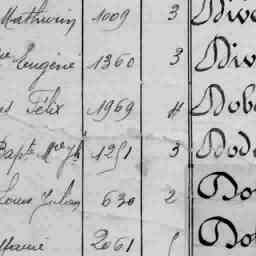 Mathurin 1009 3 Div
Eugène 1360 3 Div
Félix 1969 4 Dob
Bapte Mie Jh 1251 3 Dod
Louis Julien 630 2 Do
2061 5 Do